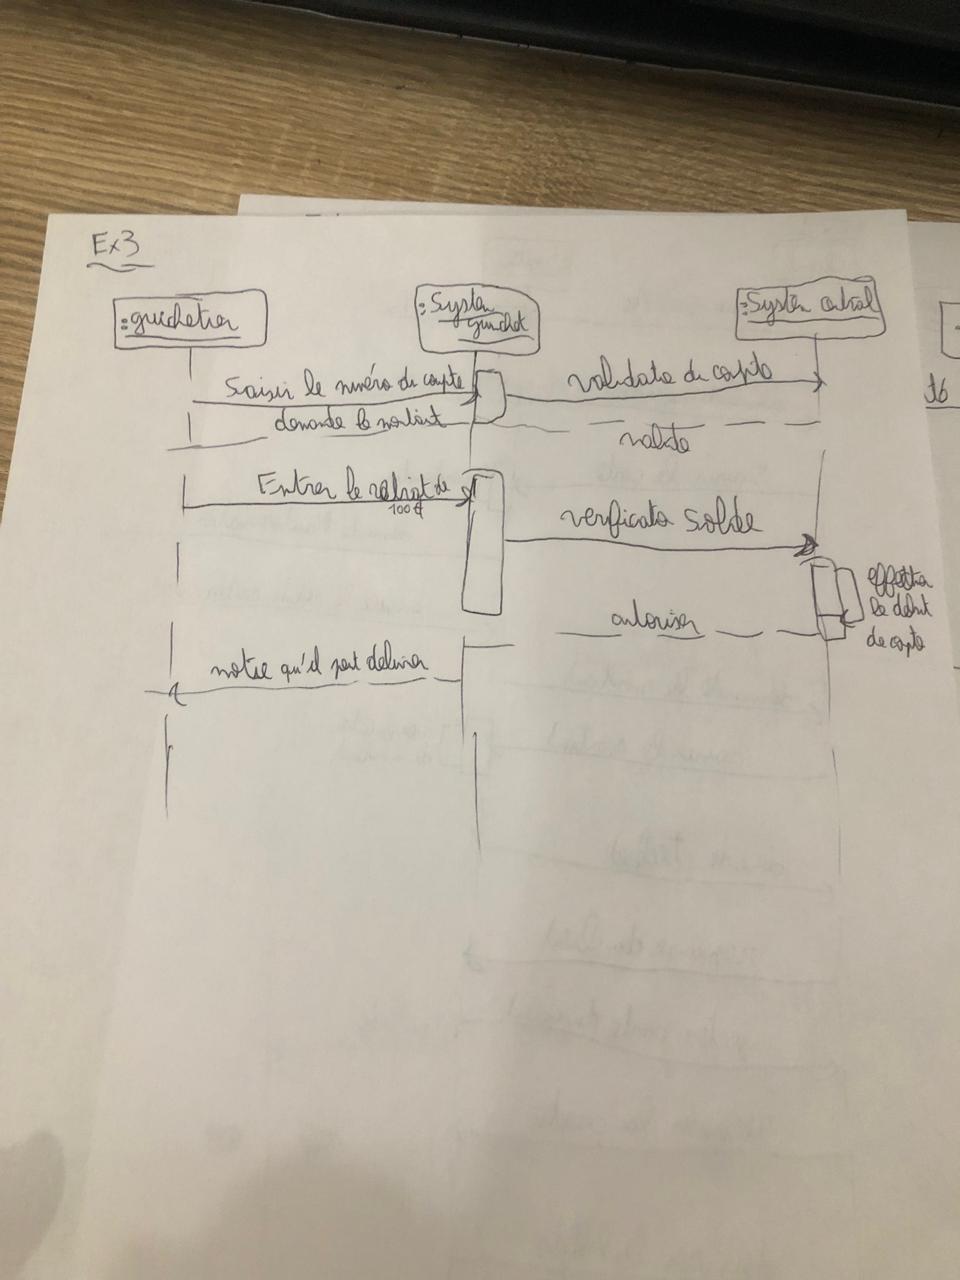 Ex3
:guichetier
:System
guichet
:System central
Saisir le numéro du compte
validate du compte
demande le montant
valide
Entrer le retrait de
100€
verificato solde
effectuer
le débit
de compte
autoriser
notre qu'il peut délivrer